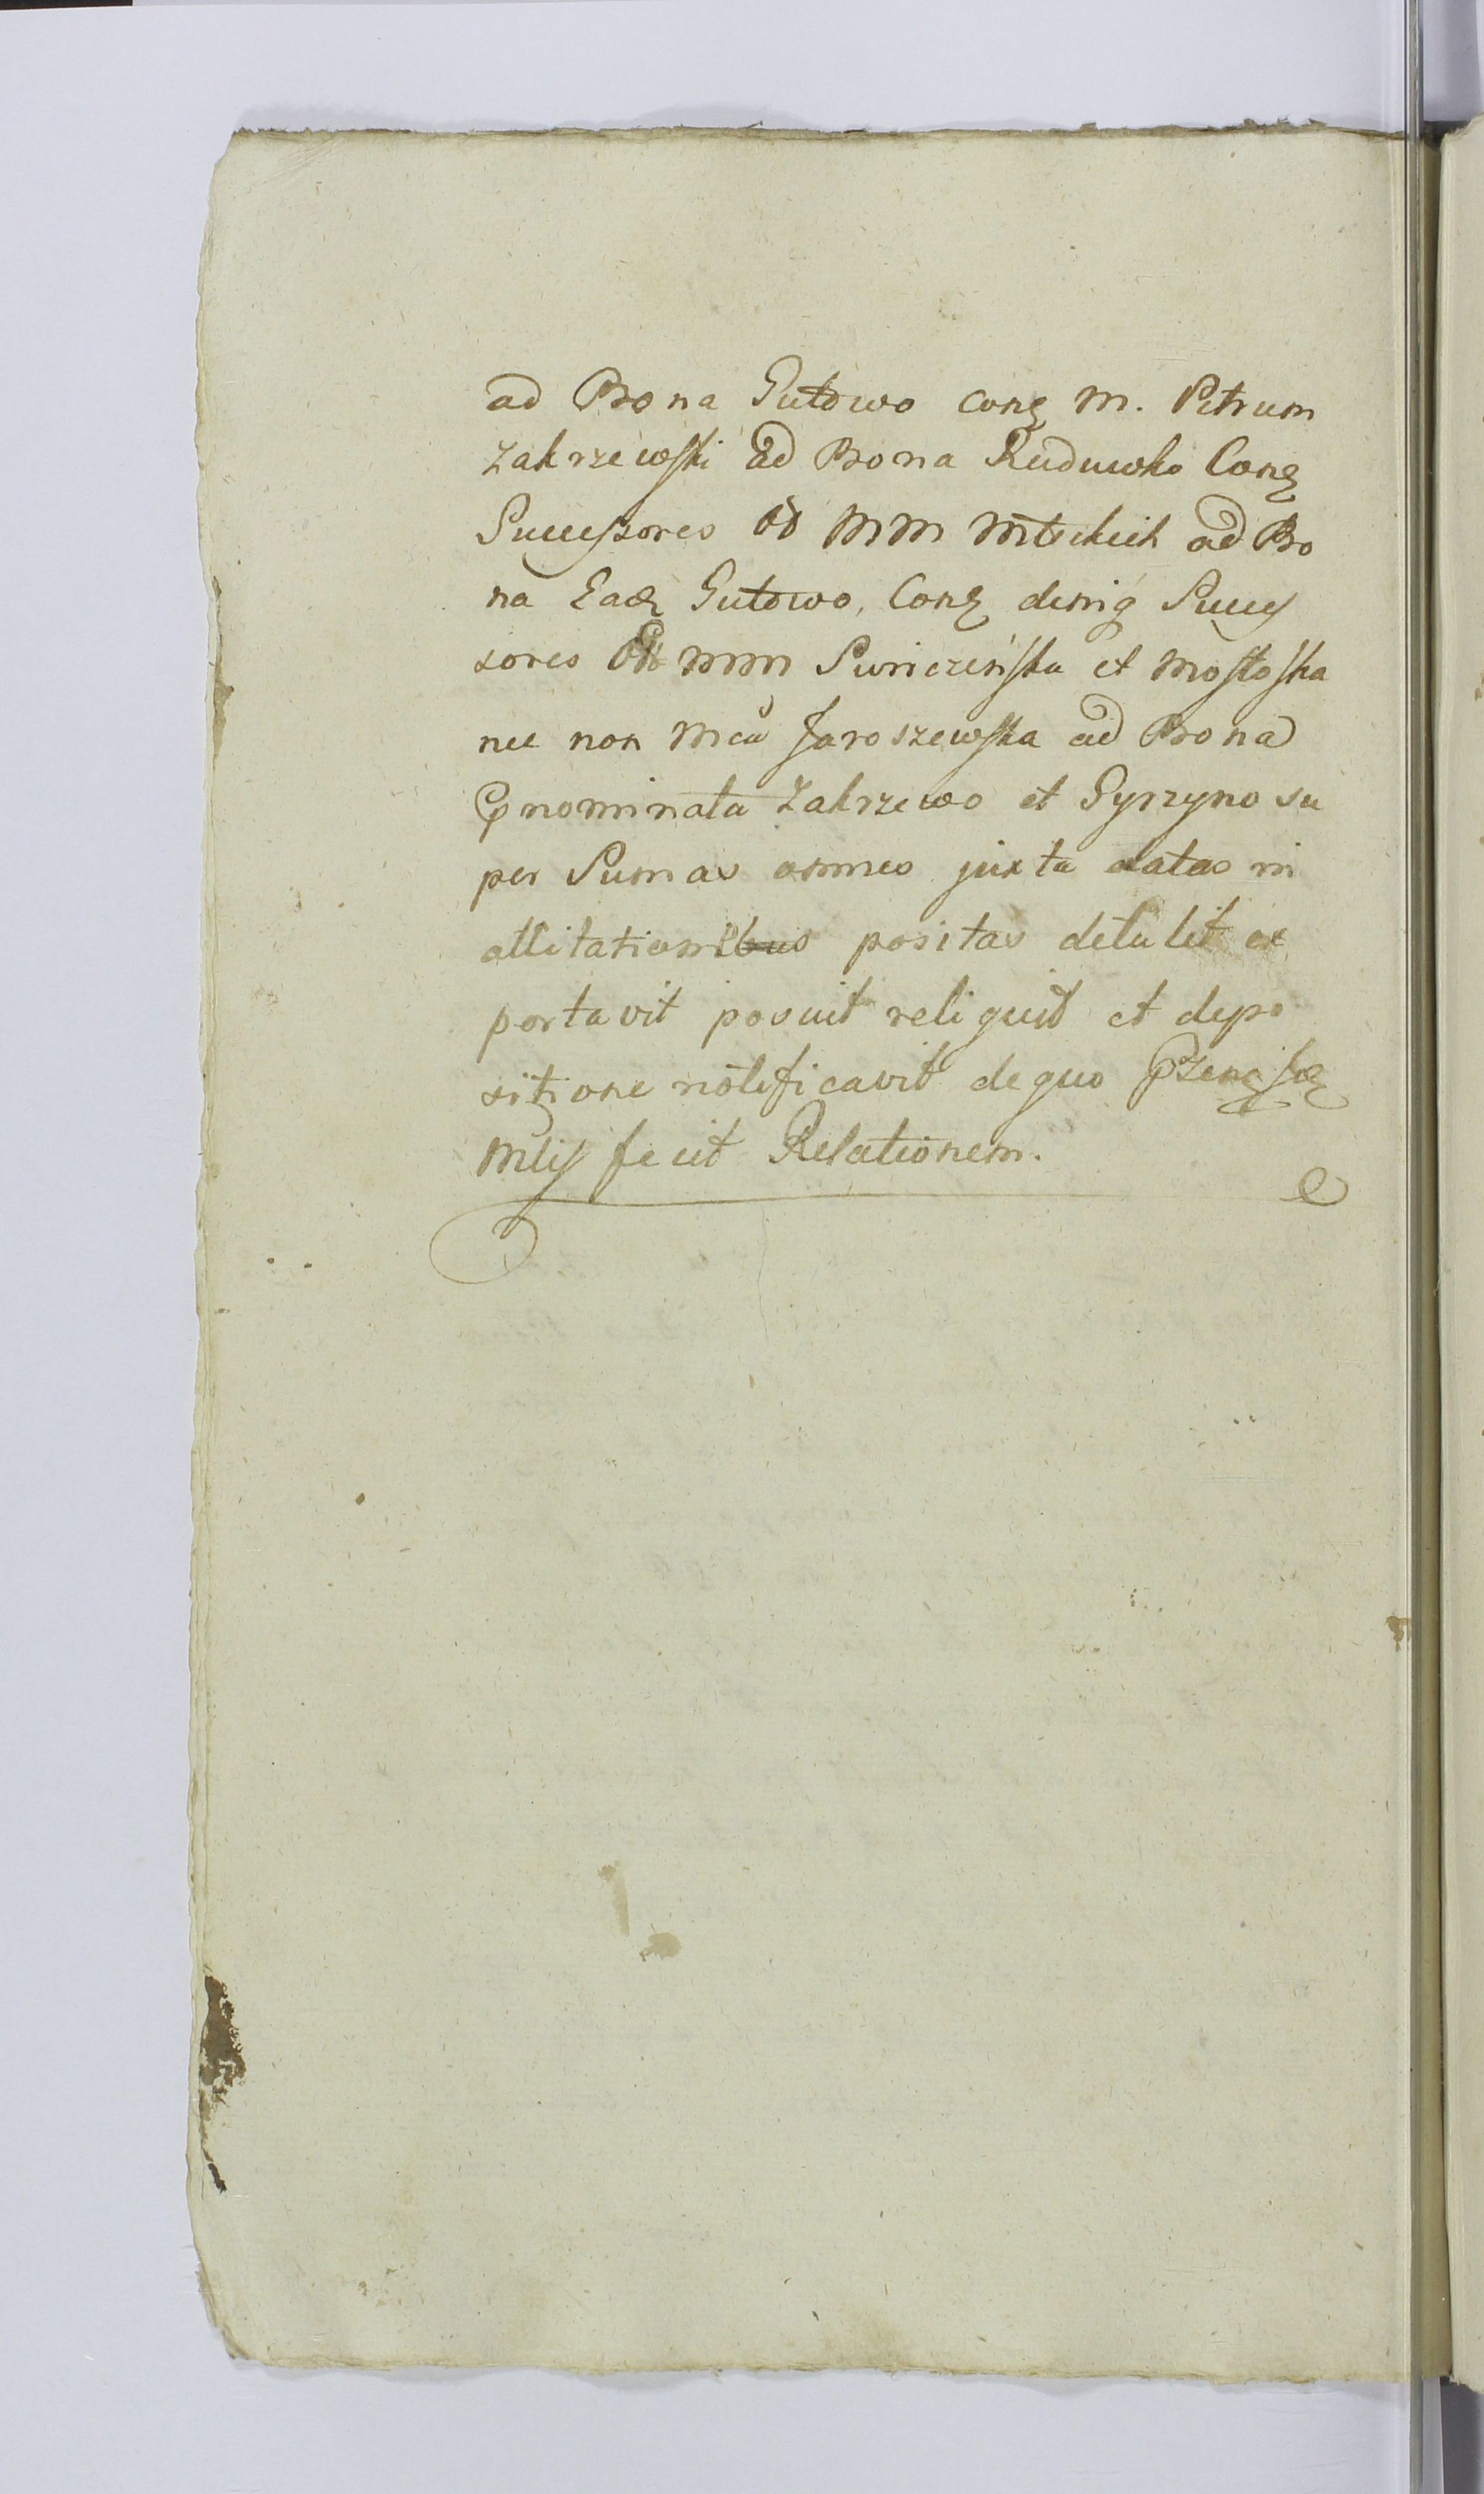 ad Bona Gutowo Conq M. Petrum
Zakrzewski ad Bona Ruduwko Conq
Successores Od MM Mtockich ad Bo
na Eadz Gutowo, Conq deniq Succes
sores MM Swiniczeńska et Mostoska
nec non Mcā Jaroszewska ad Bona
nominata Zakrzewo et Gyrzyno su
per Sumas omnes juxta datas in
allitationibus positas detulit ex
portavit posuit reliquit et depo
sitione notificavit de quo
fecit Relationem.